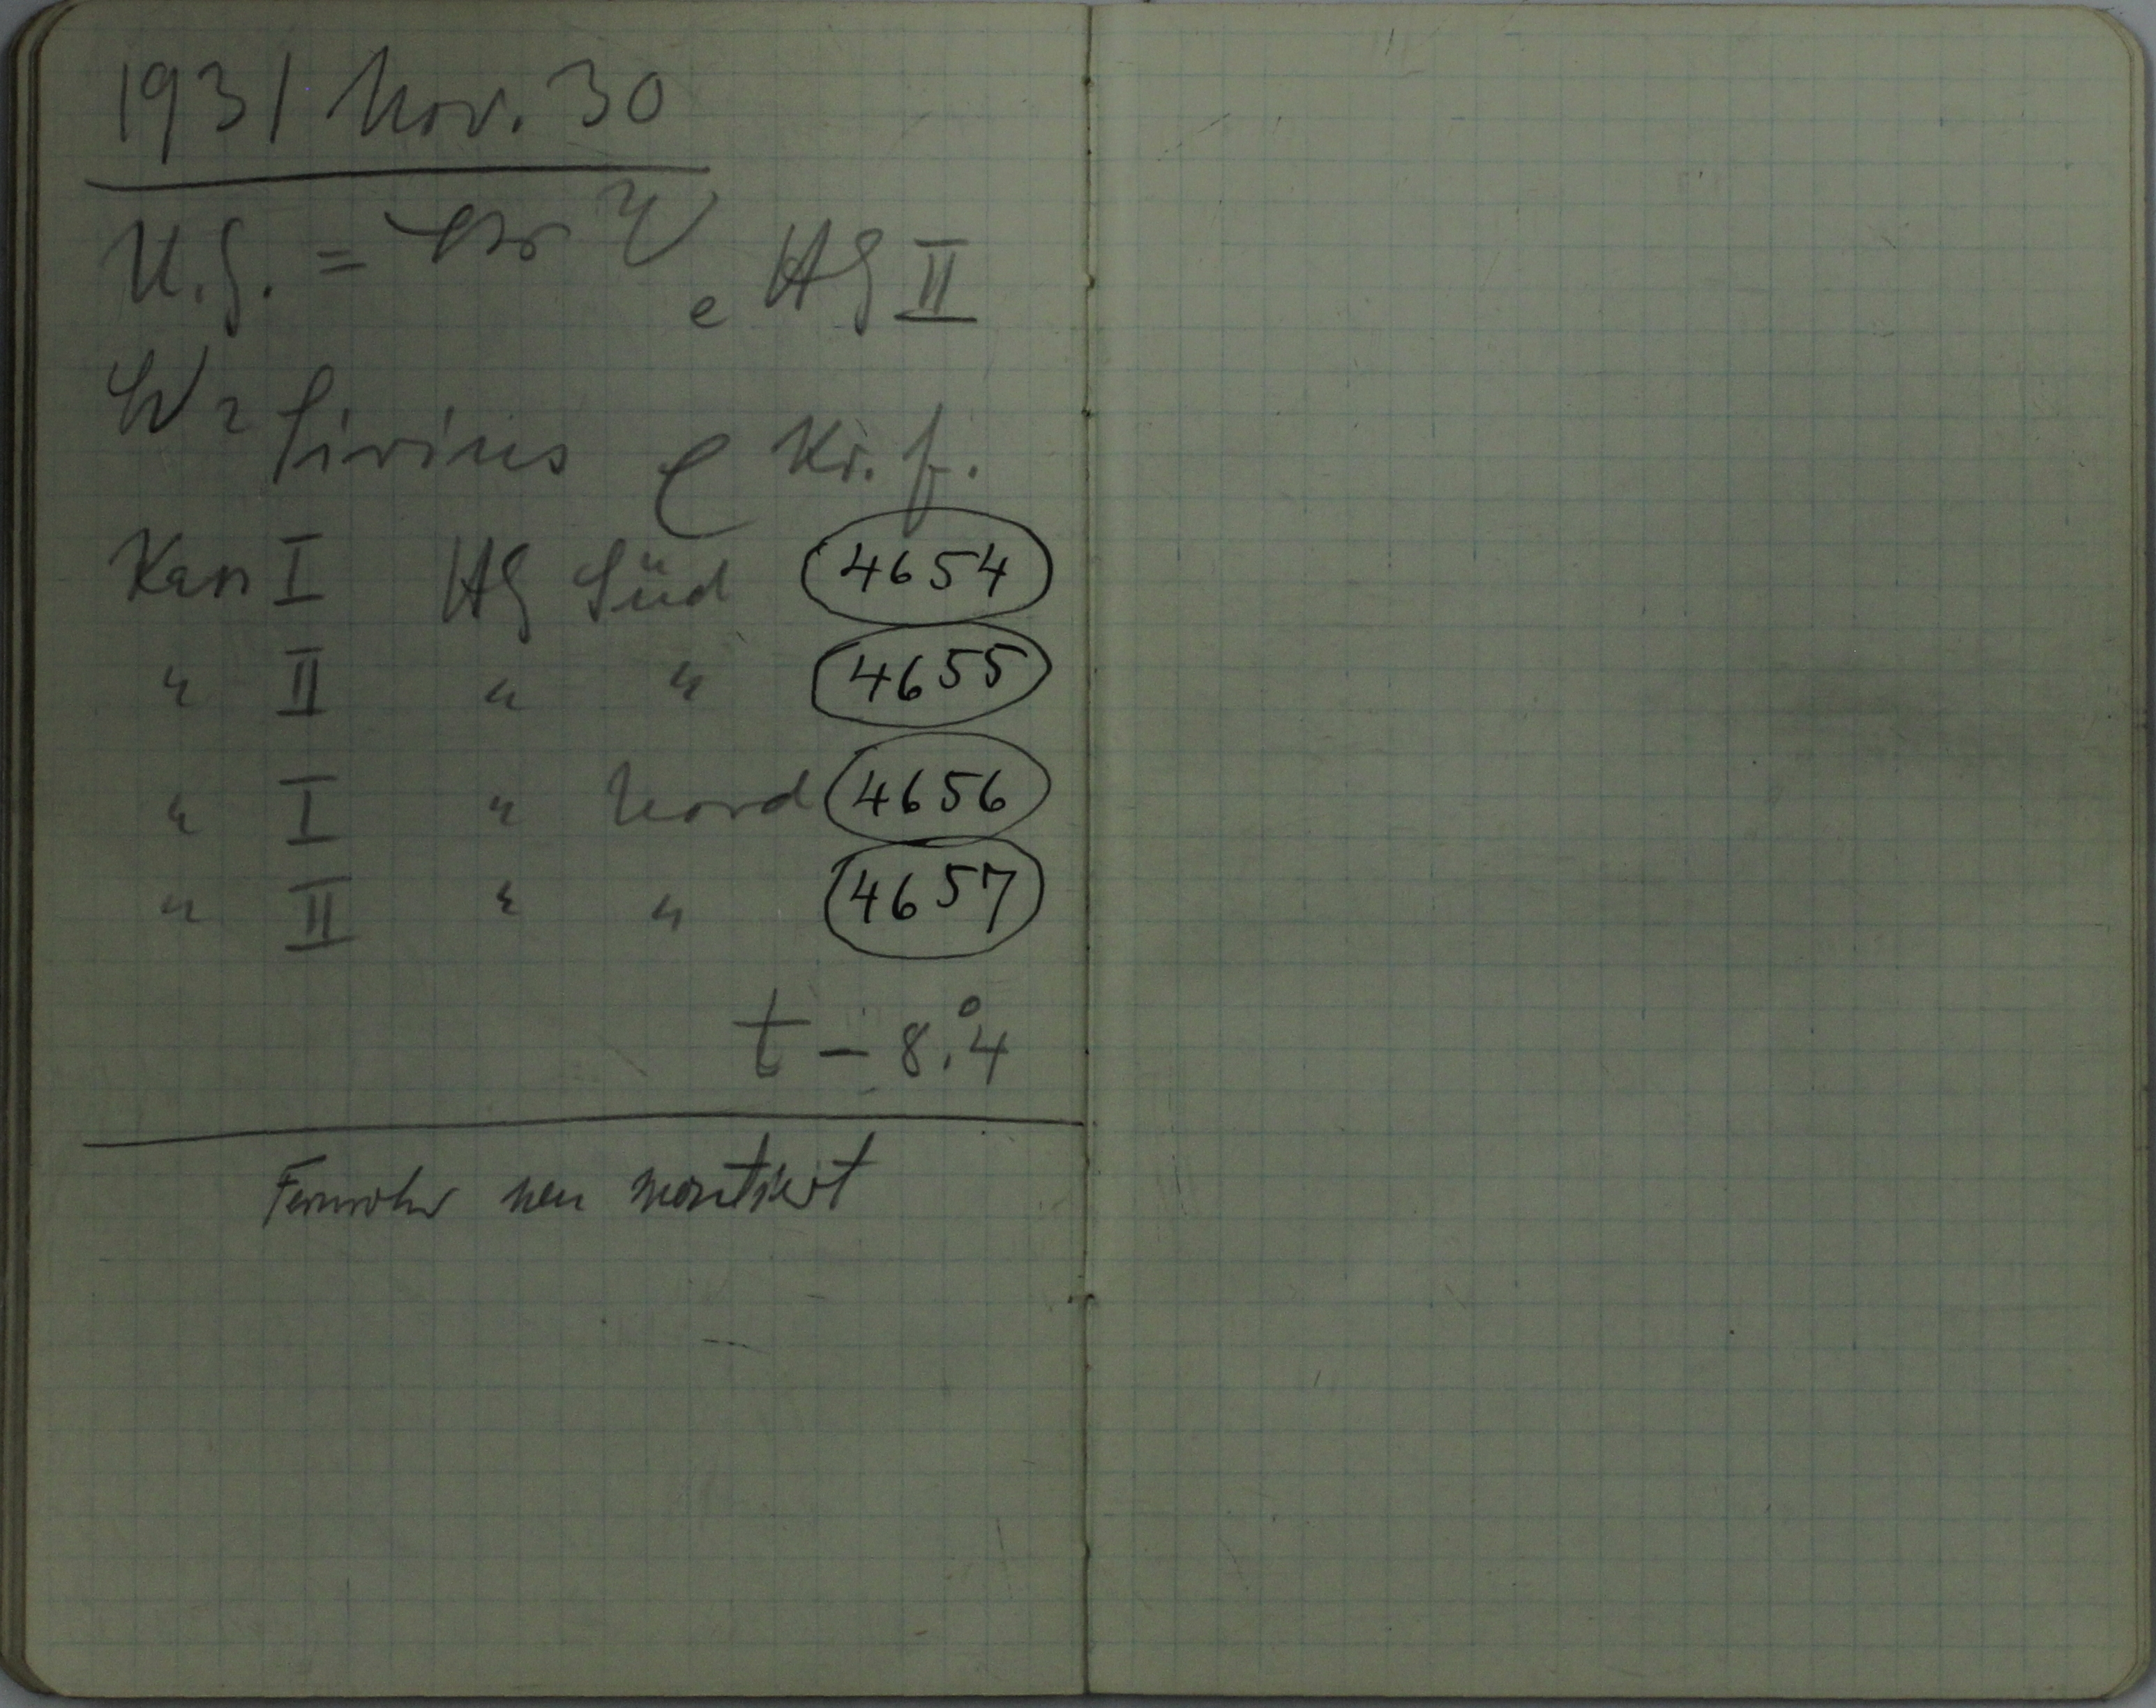 1931 Nov. 30
U.G. = HG II
Sirius Kr. f.
Kass I HG Süd 4654
" II " " 4655
" I " Nord 4656
" II " " 4657
t - 8.°4
Fernrohr neu montiert